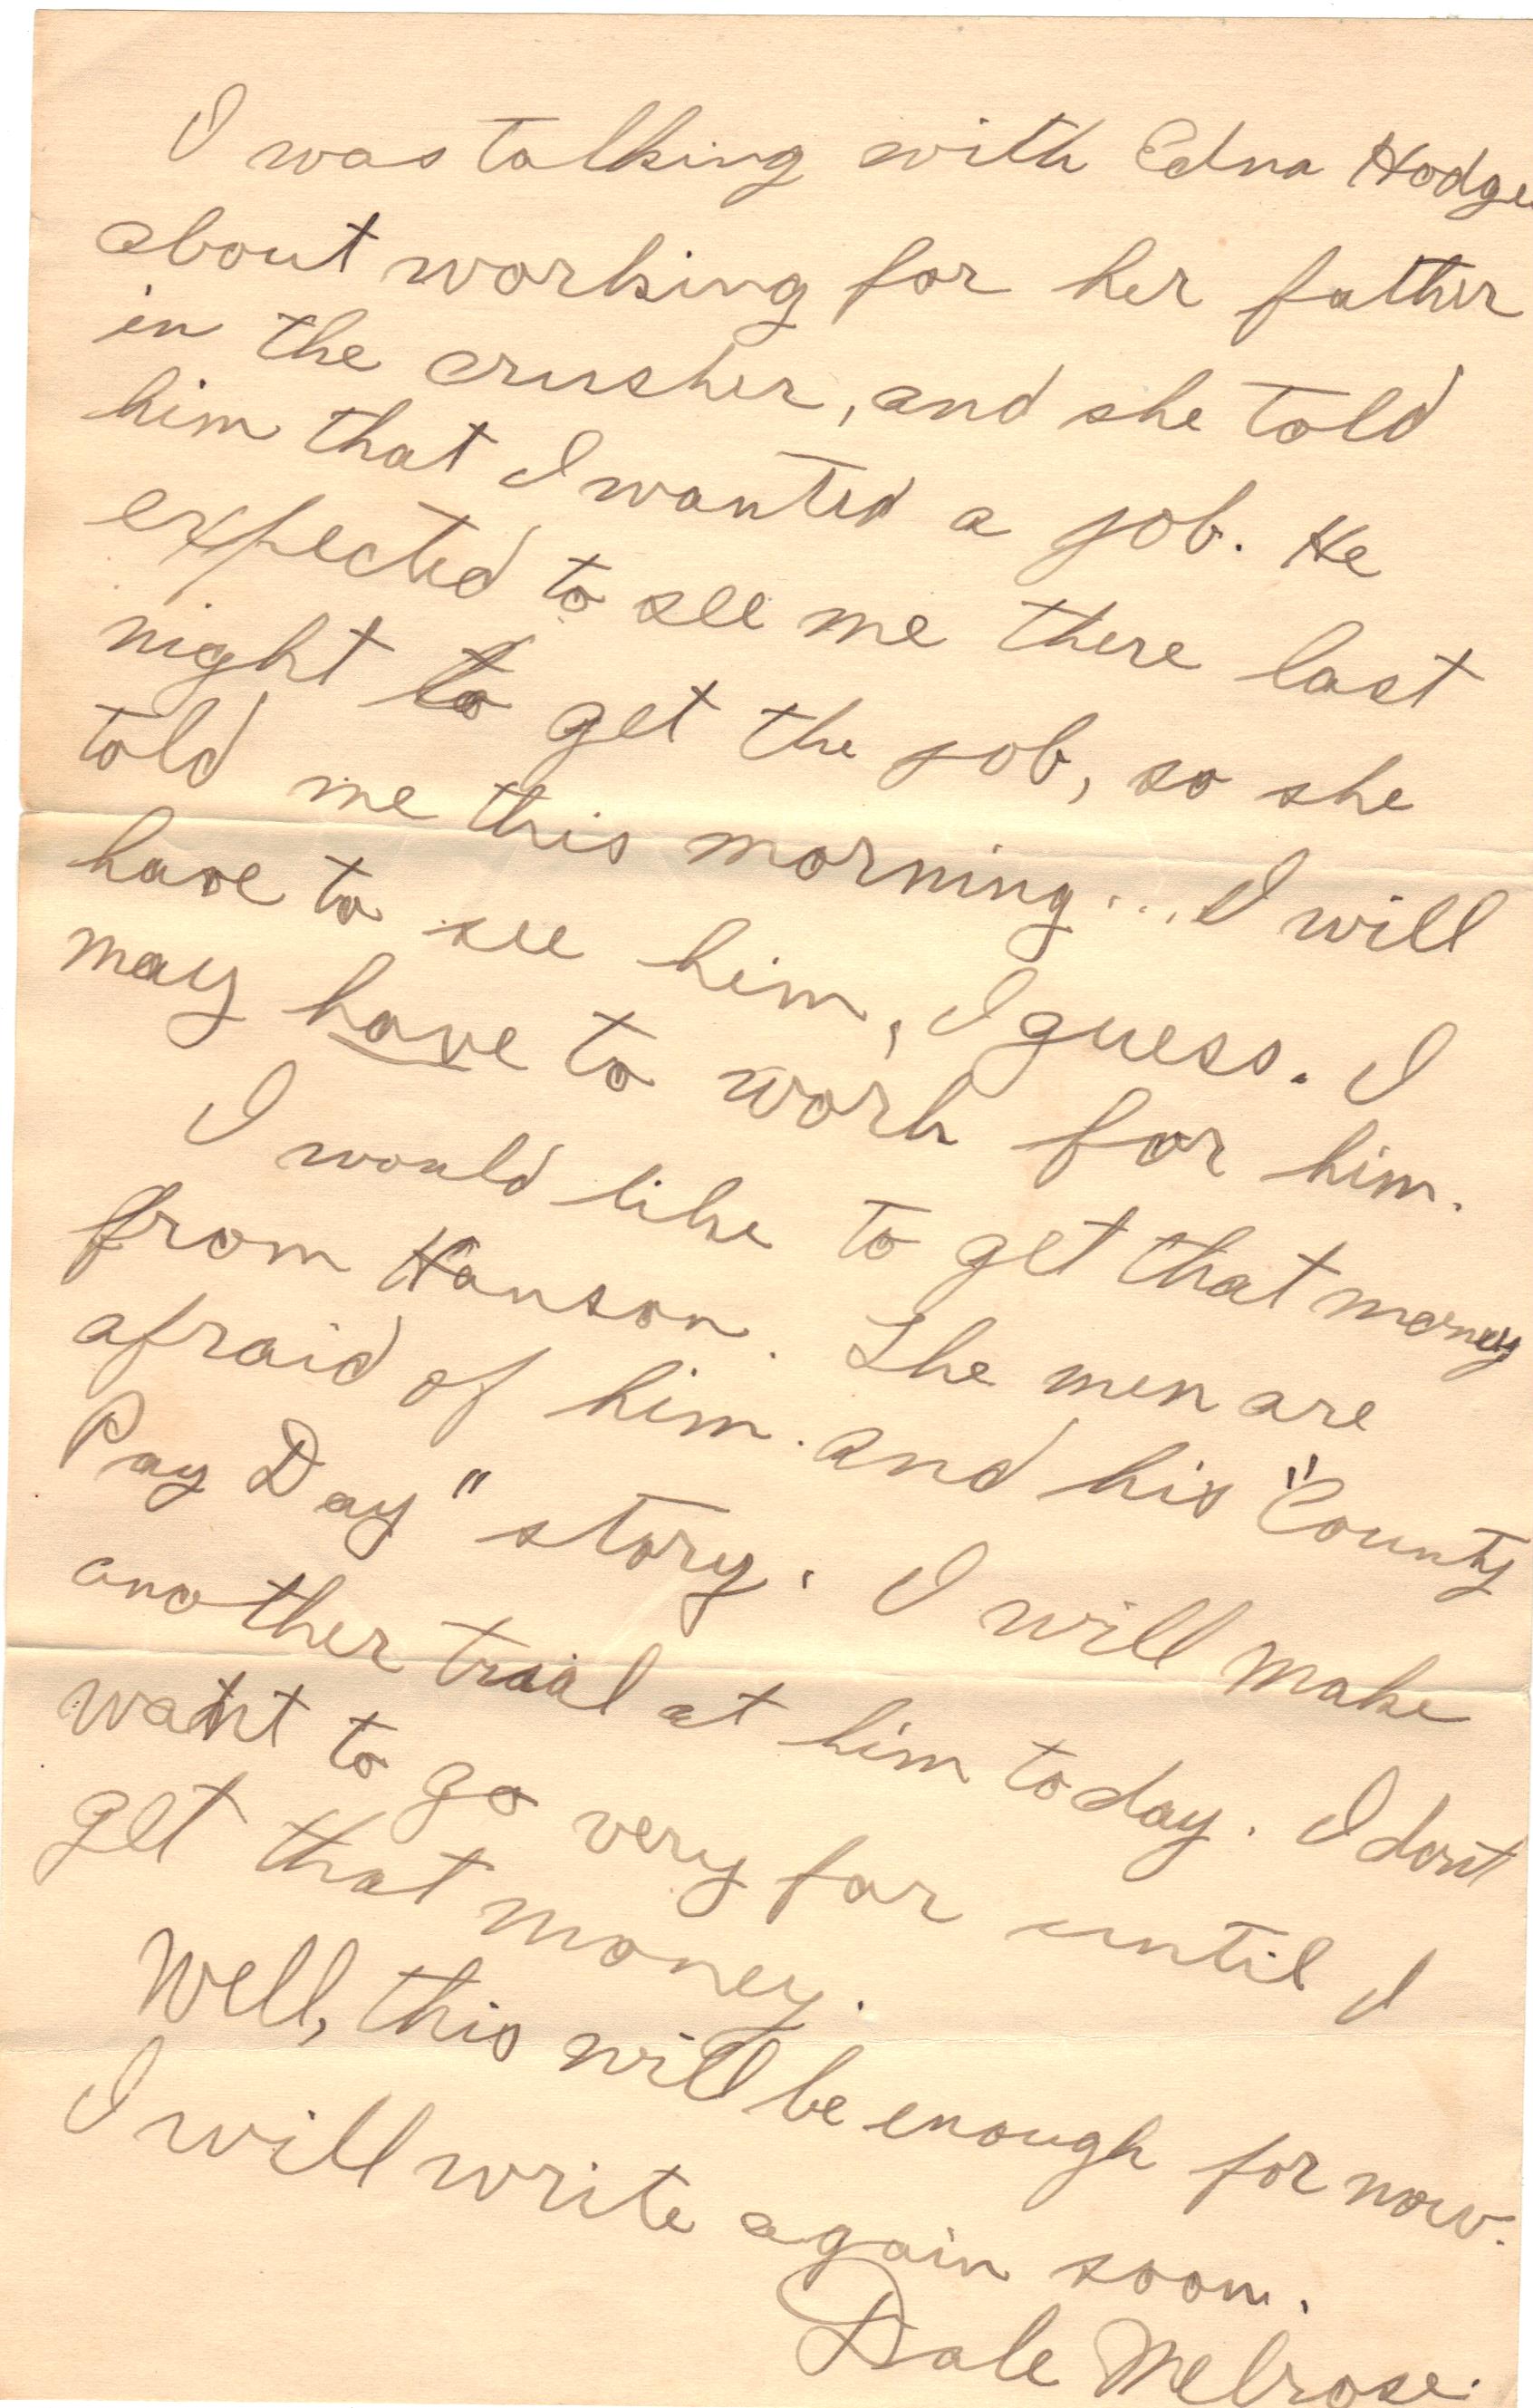 I was talking with Edna Hodge
about working for her father
in the crusher, and she told
him that I wanted a job. He
expected to see me there last
night to get the job, so she
told me this morning... I will
have to see him, I guess. I
may have to work for him.
I would like to get that money
from Hanson. The men are
afraid of him. and his "County
Pay Day" story. I will make
another trial at him today. I dont
want to go very far until I
get that money.
Well, this will be enough for now.
I will write again soon.
Dale Melrose.